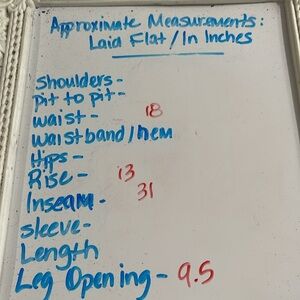 Approximate Measurements:
Laid Flat/In Inches
Shoulders-
pit to pit-
waist- 18
waistband/hem
Hips-
Rise- 13
Inseam- 31
sleeve-
Length
Leg Opening- 9.5